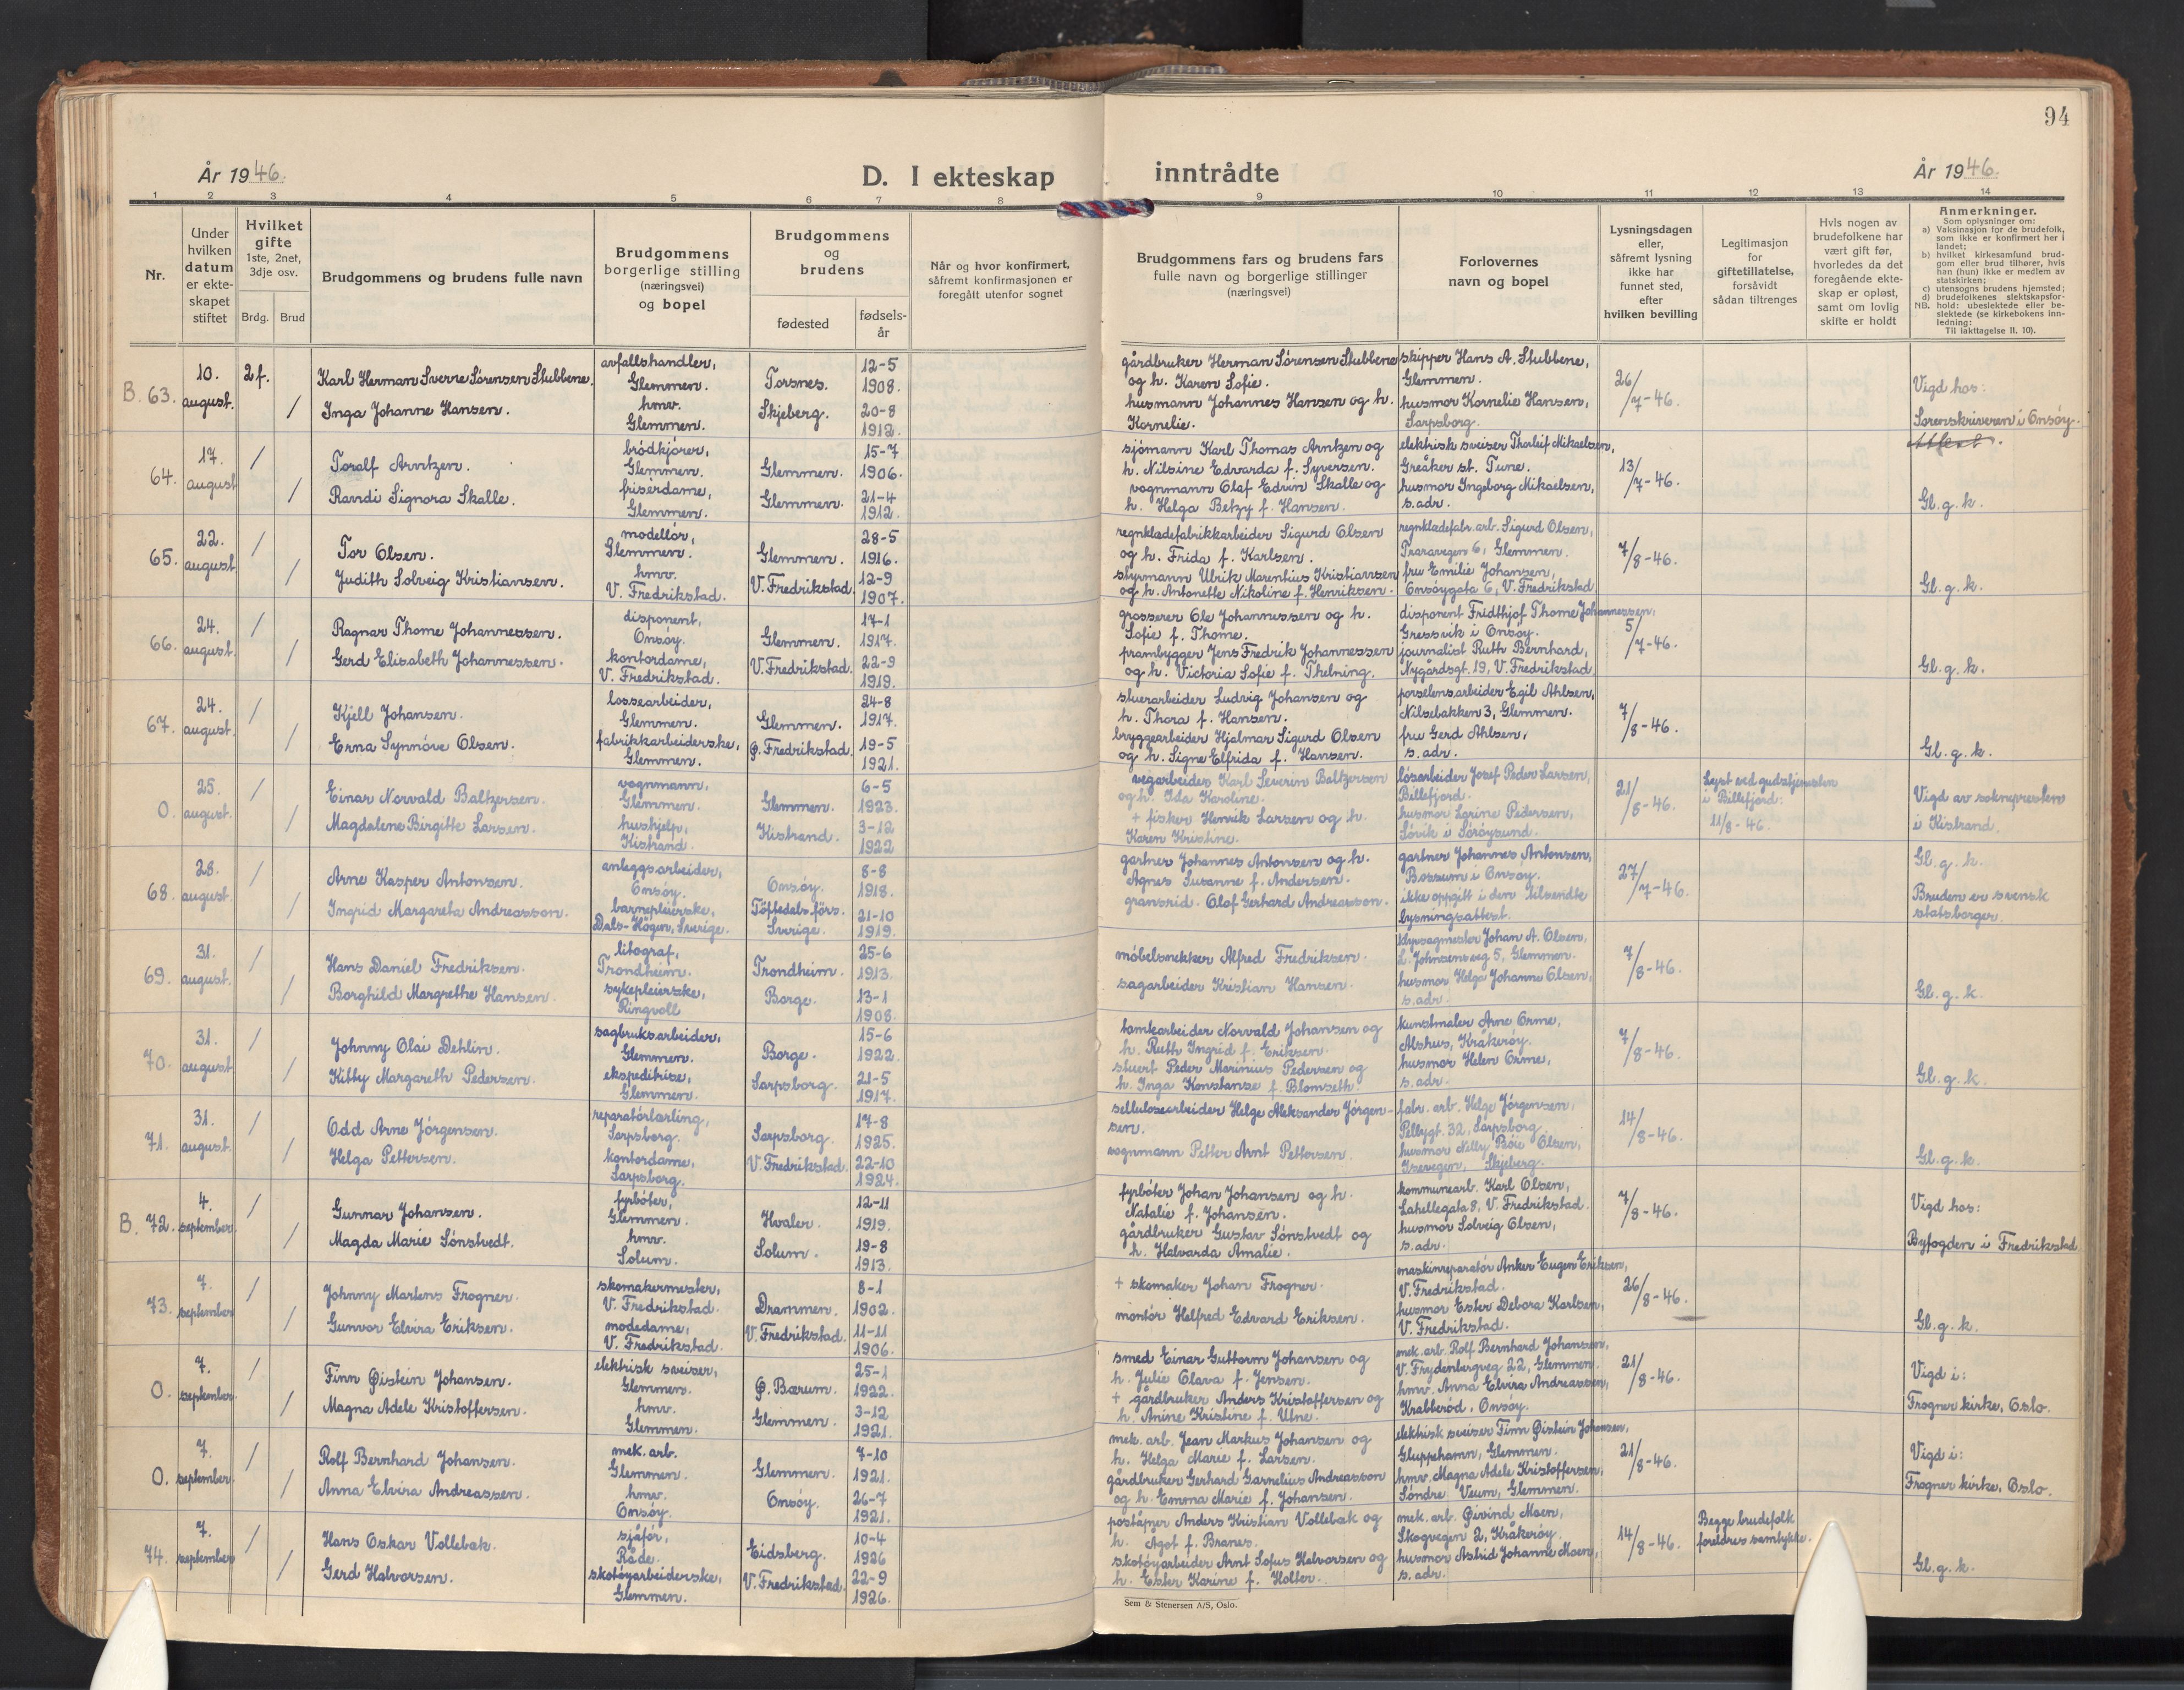 94
År 1946.
D. I ekteskap inntrådte
År 1946.
1 2 3 4 5 6 7 8 9 10 11 12 13 14
Nr.
Under hvilken datum er ekte-skapet stiftet
Hvilket gifte 1ste, 2net, 3dje osv.
Brdg. Brud
Brudgommens og brudens fulle navn
Brudgommens borgerlige stilling (næringsvei) og bopel
Brudgommens og brudens
fødested
fødsels-år
Når og hvor konfirmert, såfremt konfirmasjonen er foregått utenfor sognet
Brudgommens fars og brudens fars fulle navn og borgerlige stillinger (næringsvei)
Forlovernes navn og bopel
Lysningsdagen eller, såfremt lysning ikke har funnet sted, efter hvilken bevilling
Legitimasjon for giftetillatelse, forsåvidt sådan tiltrenges
Hvis nogen av brudefolkene har vært gift før, hvorledes da det foregående ekte-skap er opløst, samt om lovlig skifte er holdt
Anmerkninger.
Som oplysninger om:
a) Vaksinasjon for de brudefolk, som ikke er konfirmert her i landet;
b) hvilket kirkesamfund brud-gom eller brud tilhører, hvis han (hun) ikke er medlem av statskirken;
c) utensogns brudens hjemsted;
d) brudefolkenes slektskapsfor-hold: ubeslektede eller be-slektede (se kirkebokens inn-ledning:
NB. Til iakttagelse II. 10).
B. 63. 10. august. 2 f. /
Karl Herman Sverre Sørensen Stubbene.
Inga Johanne Hansen.
avfallshandler, Glemmen.
hmv. Glemmen.
Torsnes. 12-5 1908.
Skjeberg. 20-8 1912.
gårdbruker Herman Sørensen Stubbene
og h. Karen Sofie.
husmann Johannes Hansen og h.
Kornelie.
skipper Hans A. Stubbene,
Glemmen.
husmor Kornelie Hansen,
Sarpsborg.
26/7-46.
Vigd hos:
Sorenskriveren i Onsøy.
64. 17. august / /
Toralf Arntzen.
Ravdi Signora Skalle.
brødkjører, Glemmen.
frisørdame, Glemmen.
Glemmen. 15-7 1906.
Glemmen. 21-4 1912.
sjømann Karl Thomas Arntzen og
h. Nilsine Edvarda f. Syversen.
vognmann Olaf Edvin Skalle og
h. Helga Betzy f. Hansen.
elektrisk sveiser Thorleif Mikaelsen,
Greåker st. Tune.
husmor Ingeborg Mikaelsen,
s. adr.
13/7-46.
Gl. g. k.
65. 22. august / /
Tor Olsen.
Judith Solveig Kristiansen.
modellør, Glemmen.
hmv. V. Fredrikstad.
Glemmen. 28-5 1916.
V. Fredrikstad. 12-9 1907.
regnklædefabrikkarbeider Sigurd Olsen
og h. Frida f. Karlsen.
styrmann Ulrik Marentius Kristiansen
og h. Antonette Nikoline f. Henriksen.
regnklædefabr. arb. Sigurd Olsen,
Traravegen 6, Glemmen.
fru Emilie Johansen,
Onsøygata 6, V. Fredrikstad
7/8-46.
Gl. g. k.
66. 24. august. / /
Ragnar Thome Johannessen.
Gerd Elisabeth Johannessen.
disponent, Onsøy.
kontordame, V. Fredrikstad.
Glemmen. 17-1 1917.
V. Fredrikstad. 22-9 1919.
grosserer Ole Johannessen og h.
Sofie f. Thome.
prambygger Jens Fredrik Johannessen
og h. Victoria Sofie f. Thelning.
disponent Fridthjof Thome Johannessen,
Gressvik i Onsøy.
journalist Ruth Bernhard,
Nygårdsgt. 19, V. Fredrikstad
5/7-46.
Gl. g. k.
67. 24. august. / /
Kjell Johansen.
Erna Synnöve Olsen.
lossearbeider, Glemmen.
fabrikkarbeiderske, Glemmen.
Glemmen. 24-8 1917.
Ø. Fredrikstad. 19-5 1921.
stuerarbeider Ludvig Johansen og
h. Thora f. Hansen.
bryggearbeider Hjalmar Sigurd Olsen
og h. Signe Elfrida f. Hansen.
porselensarbeider Egil Ahlsen,
Nilsebakken 3, Glemmen.
fru Gerd Ahlsen,
s. adr.
7/8-46.
Gl. g. k.
0. 25. august. / /
Einar Norvald Baltzersen.
Magdalene Birgitte Larsen.
vognmann, Glemmen.
hushjelp, Kistrand.
Glemmen. 6-5 1923.
Kistrand. 3-12 1922
vegarbeider Karl Severin Baltzersen
og h. Ida Karoline.
+ fisker Henrik Larsen og h.
Karen Kristine.
løsarbeider Josef Peder Larsen,
Billefjord.
husmor Larine Pedersen,
Søvik i Sørøysund.
21/8-46.
Lyst ved gudstjenesten
i Billefjord:
11/8-46.
Vigd av soknepresten
i Kistrand.
68. 28. august. / /
Arne Kasper Antonsen.
Ingrid Margareta Andreasson.
anleggsarbeider, Onsøy.
barnepleierske, Dals-Högen, Sverige.
Onsøy. 8-8 1918.
Töftedals förs. Sverige. 21-10 1919.
gartner Johannes Antonsen og h.
Agnes Susanne f. Andersen.
gransrid. Olof Gerhard Andreasson.
gartner Johannes Antonsen,
Bossum i Onsøy.
ikke oppgitt i den tilsendte
lysningsattest.
27/7-46.
Gl. g. k.
Bruden er svensk
statsborger.
69. 31. august. / /
Hans Daniel Fredriksen.
Borghild Margrethe Hansen.
litograf, Trondheim.
sykepleierske, Ringvoll
Trondheim. 25-6 1913.
Borge. 13-1 1908.
møbelsnekker Alfred Fredriksen.
sagarbeider Kristian Hansen.
Johan A. Olsen,
L. Johnsensveg 5, Glemmen.
husmor Helga Johanne Olsen,
s. adr.
7/8-46.
Gl. g. k.
70. 31. august / /
Johnny Olai Dehlin.
Kitty Margareth Pedersen.
sagbruksarbeider, Glemmen.
ekspeditrise, Glemmen.
Borge. 15-6 1922.
Sarpsborg. 21-5 1917.
tomtearbeider Norvald Johansen og
h. Ruth Ingrid f. Eriksen.
stuert Peder Marinius Pedersen og
h. Inga Konstanse f. Blomseth.
kunstmaler Arne Orme,
Alshus, Kråkerøy.
husmor Helen Orme,
s. adr.
7/8-46.
Gl. g. k.
71. 31. august. / /
Odd Arne Jörgensen.
Helga Pettersen.
reparatörlærling, Sarpsborg.
kontordame, Sarpsborg.
Sarpsborg. 17-8 1925.
V. Fredrikstad. 22-10 1924.
sellulosearbeider Helge Aleksander Jörgen-
sen.
vognmann Petter Arnt Pettersen.
fabr. arb. Helge Jörgensen,
Pellygt. 32, Sarpsborg.
husmor Nelly Böie Olsen,
Isevegen, Skjeberg.
14/8-46.
Gl. g. k.
B. 72. 4. september. / /
Gunnar Johansen.
Magda Marie Sönstvedt.
fyrbøter, Glemmen.
hmv. Solum.
Hvaler. 12-11 1919.
Solum. 19-8 1913.
fyrbøter Johan Johansen og h.
Natalie f. Johansen.
gårdbruker Gustav Sönstvedt og
h. Halvarda Amalie.
kommunearb. Karl Olsen,
Lahellegata 8, V. Fredrikstad.
husmor Solveig Olsen,
s. adr.
7/8-46.
Vigd hos:
Byfogden i Fredrikstad
73. 7. september / /
Johnny Martens Frogner.
Gunvor Elvira Eriksen.
skomakermester, V. Fredrikstad.
motedame, V. Fredrikstad.
Drammen. 8-1 1902.
V. Fredrikstad. 11-11 1906.
+ skomaker Johan Frogner.
montör Helfred Edvard Eriksen.
maskinreparatör Anker Eugen Eriksen,
V. Fredrikstad.
husmor Ester Debora Karlsen,
V. Fredrikstad.
26/8-46.
Gl. g. k.
0. 7. september. / /
Finn Øistein Johansen.
Magna Adele Kristoffersen.
elektrisk sveiser, Glemmen.
hmv. Glemmen.
Ø. Bærum. 25-1 1922.
Glemmen. 3-12 1921.
smed Einar Guttorm Johansen og
h. Julie Olava f. Jensen.
+ gårdbruker Anders Kristoffersen og
h. Anine Kristine f. Utne.
mek. arb. Rolf Bernhard Johansen,
V. Frydenbergveg 22, Glemmen.
hmv. Anna Elvira Andreassen,
Krabberød, Onsøy.
21/8-46.
Vigd i:
Frogner kirke, Oslo.
0. 7. september. / /
Rolf Bernhard Johansen.
Anna Elvira Andreassen.
mek. arb. Glemmen.
hmv. Onsøy.
Glemmen. 7-10 1921.
Onsøy. 26-7 1921.
mek. arb. Jean Markus Johansen og
h. Helga Marie f. Larsen.
gårdbruker Gerhard Garnelius Andreasson
og h. Emma Marie f. Johansen.
elektrisk sveiser Finn Øistein Johansen,
Gluppehamn, Glemmen.
hmv. Magna Adele Kristoffersen,
Søndre Veum, Glemmen.
21/8-46.
Vigd i:
Frogner kirke, Oslo.
74. 7. september / /
Hans Oskar Vollebæk.
Gerd Halvorsen.
sjåför, Råde.
skotøyarbeiderske, Glemmen.
Eidsberg. 10-4 1926
V. Fredrikstad. 22-9 1926.
poståpner Anders Kristian Vollebæk og
h. Ågot f. Branes.
skotøyarbeider Arnt Sofus Halvorsen og
h. Ester Karine f. Holter.
mek. arb. Øivind Moen,
Skogvegen 2, Kråkerøy.
husmor Astrid Johanne Moen,
s. adr.
14/8-46.
Begge brudefolk
foreldres samtykke.
Gl. g. k.
Sem & Stenersen A/S, Oslo.